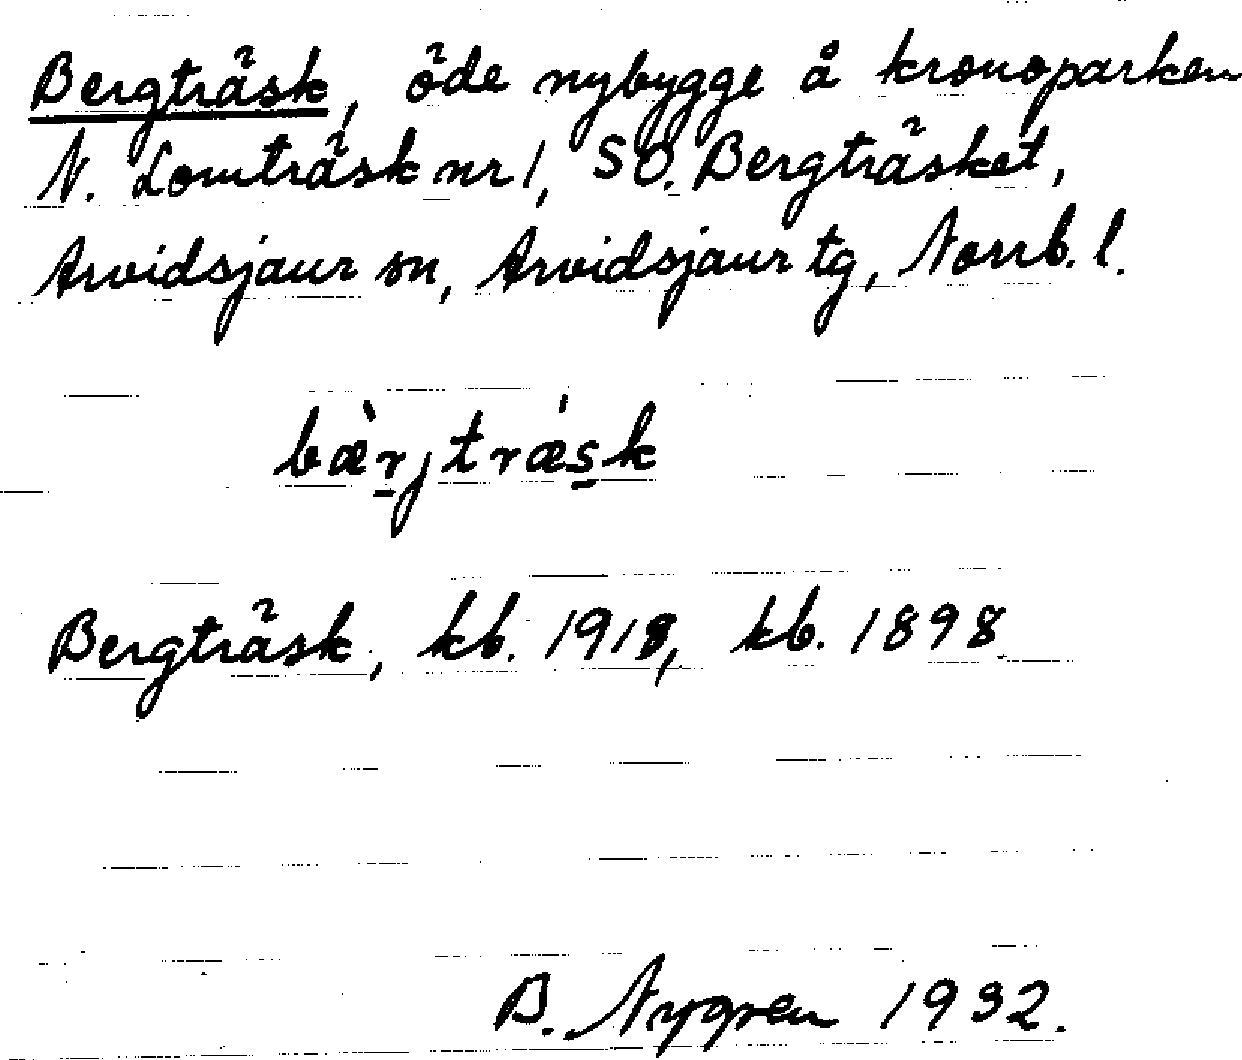 Bergträsk, öde nybygge å kronoparken
N. Lomträsk nr 1, SO. Bergträsket,
Arvidsjaur sn, Arvidsjaur tg, Norrb. l.
bæ̀rjtræ´sk
Bergträsk, kb. 1918, kb. 1898
B. Nygren 1932.